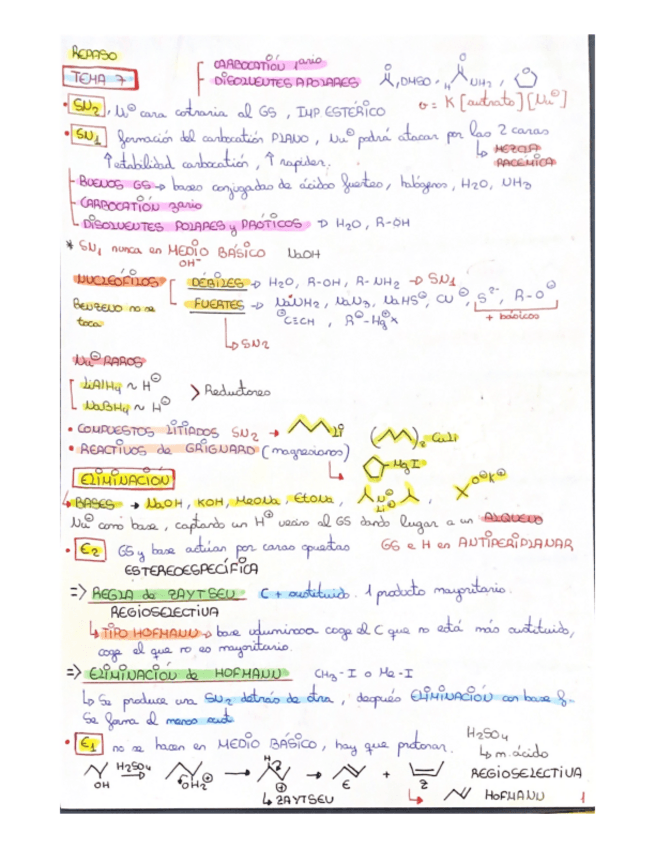 REPASO
TEMA 7
CARBOCATIÓN 1ario
DISOLVENTES APOLARES , DMSO, H NH2 ,
• SN2, Nu⊖ cara contraria al GS, IMP ESTÉRICO
v = K [sustrato] [Nu⊖]
• SN1 formación del carbocatión PLANO, Nu⊖ podrá atacar por las 2 caras
↳ MEZCLA RACÉMICA
↑ estabilidad carbocatión, ↑ rapidez.
BUENOS GS → bases conjugadas de ácidos fuertes, halógenos, H2O, NH3
CARBOCATIÓN 3ario
DISOLVENTES POLARES y PRÓTICOS → H2O, R-OH
* SN1 nunca en MEDIO BÁSICO NaOH
OH⁻
NUCLEÓFILOS DÉBILES → H2O, R-OH, R-NH2 → SN1
BENZENO no se toca
FUERTES → NaNH2, NaN3, NaHS⊖, CN⊖, S²⁻, R-O⊖
⊖C≡CH, R⊖-Mg⊕X
+ básicos
↳ SN2
Nu⊖ RAROS
LiAlH4 ~ H⊖
NaBH4 ~ H⊖
> Reductores
• COMPUESTOS LITIADOS SN2 → Li ( )2 CuLi
• REACTIVOS de GRIGNARD (magnesianos)
↳ MgI
ELIMINACIÓN
↳ BASES → NaOH, KOH, MeONa, EtONa, N⊖ Li⊕ , O⊖K⊕
Nu⊖ como base, captando un H⊕ vecino al GS dando lugar a un ALQUENO
• E2 GS y base actúan por caras opuestas GS e H en ANTIPERIPLANAR
ESTEREOESPECÍFICA
=> REGLA de ZAYTSEV C + sustituido. 1 producto mayoritario.
REGIOSELECTIVA
↳ TIPO HOFMANN → base voluminosa coge el C que no está más sustituido,
coge el que no es mayoritario.
=> ELIMINACIÓN de HOFMANN CH3-I o Me-I
↳ Se produce una SN2 detrás de otra, después ELIMINACIÓN con base f.
Se forma el menos sust
• E1 no se hacen en MEDIO BÁSICO, hay que protonar. H2SO4
↳ m. ácido
OH H2SO4 → OH2⊕ → H ⊕ → E + Z REGIOSELECTIVA
↳ ZAYTSEV ↳ HOFMANN 1